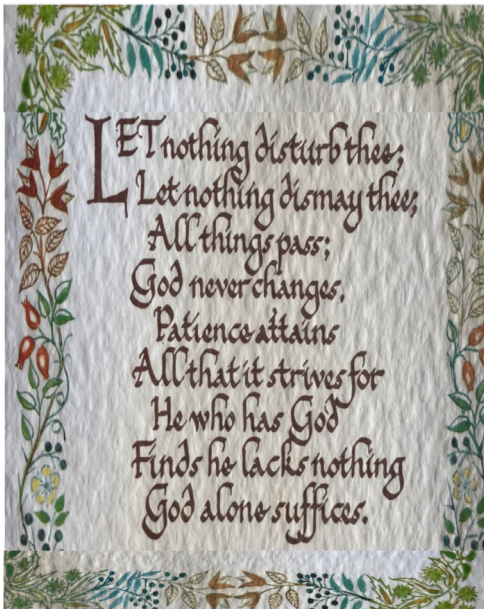 LET nothing disturb thee;
Let nothing dismay thee;
All things pass;
God never changes.
Patience attains
All that it strives for
He who has God
Finds he lacks nothing
God alone suffices.